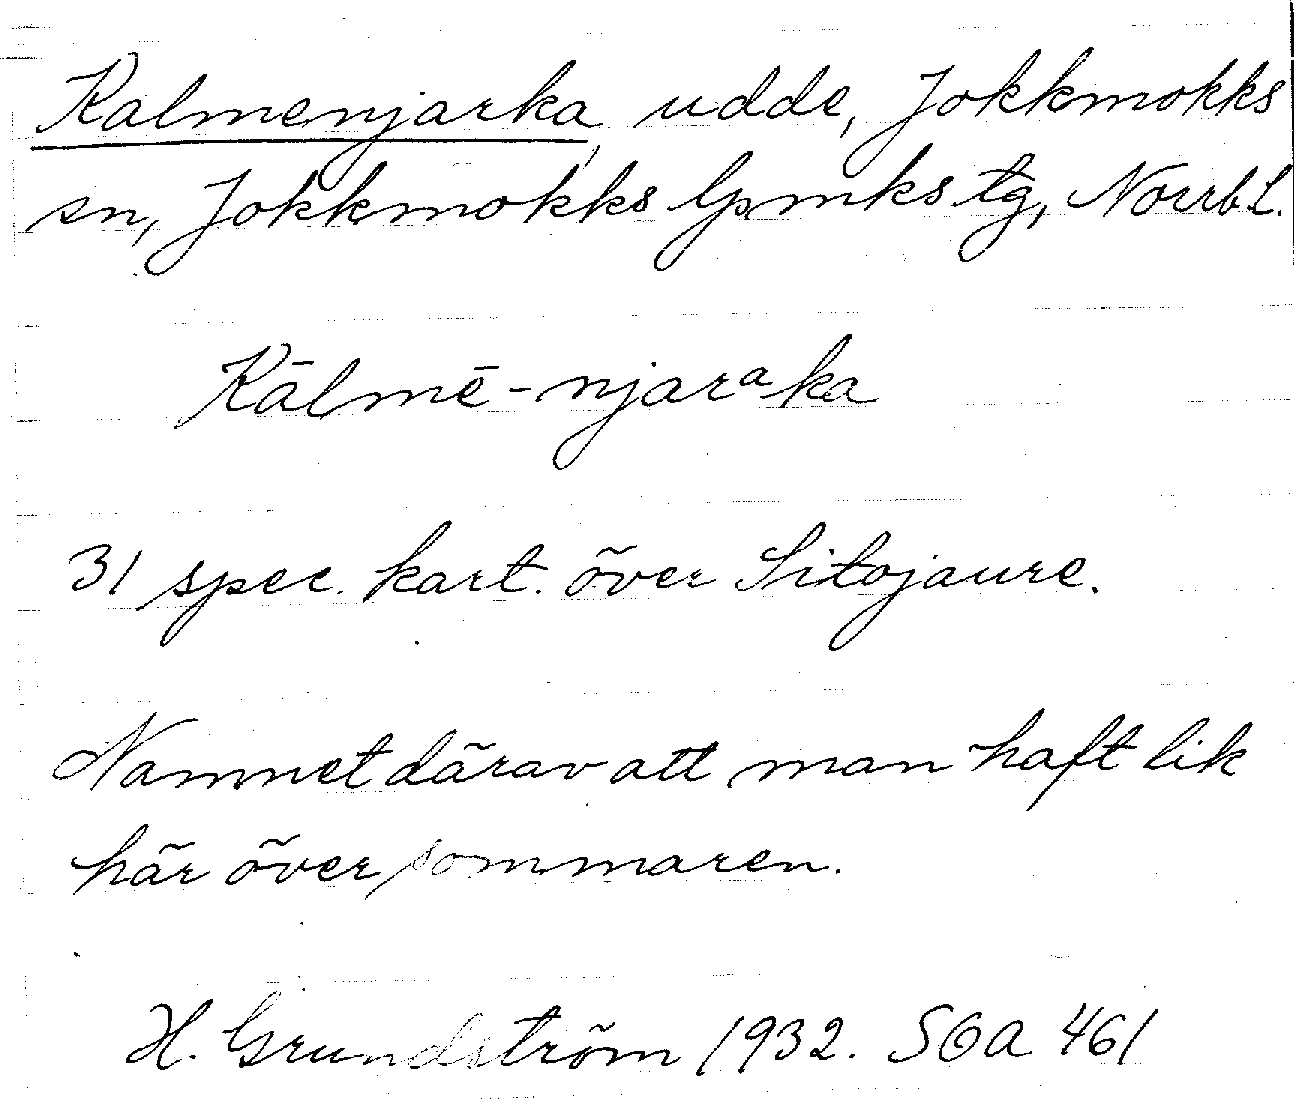 Kalmenjarka, udde, Jokkmokks
sn, Jokkmokks lpmks tg, Norrb.L.
Kālmē-njarᵃka
31 spec. kart. över Sitojaure.
Namnet därav att man haft lik
här över sommaren.
H. Grundström 1932. SOA 461